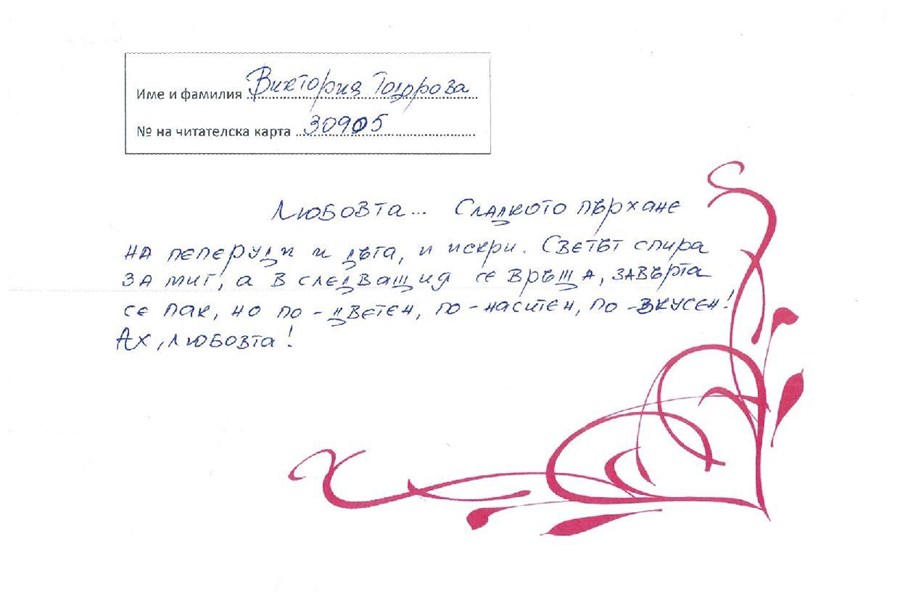 Име и фамилия Виктория Тодорова
№ на читателска карта 30905
Любовта... Сладкото пърхане
на пеперуди и дъга, и искри. Светът спира
за миг, а в следващия се връща, завърта
се пак, но по-цветен, по-наситен, по-вкусен!
Ах, любовта!